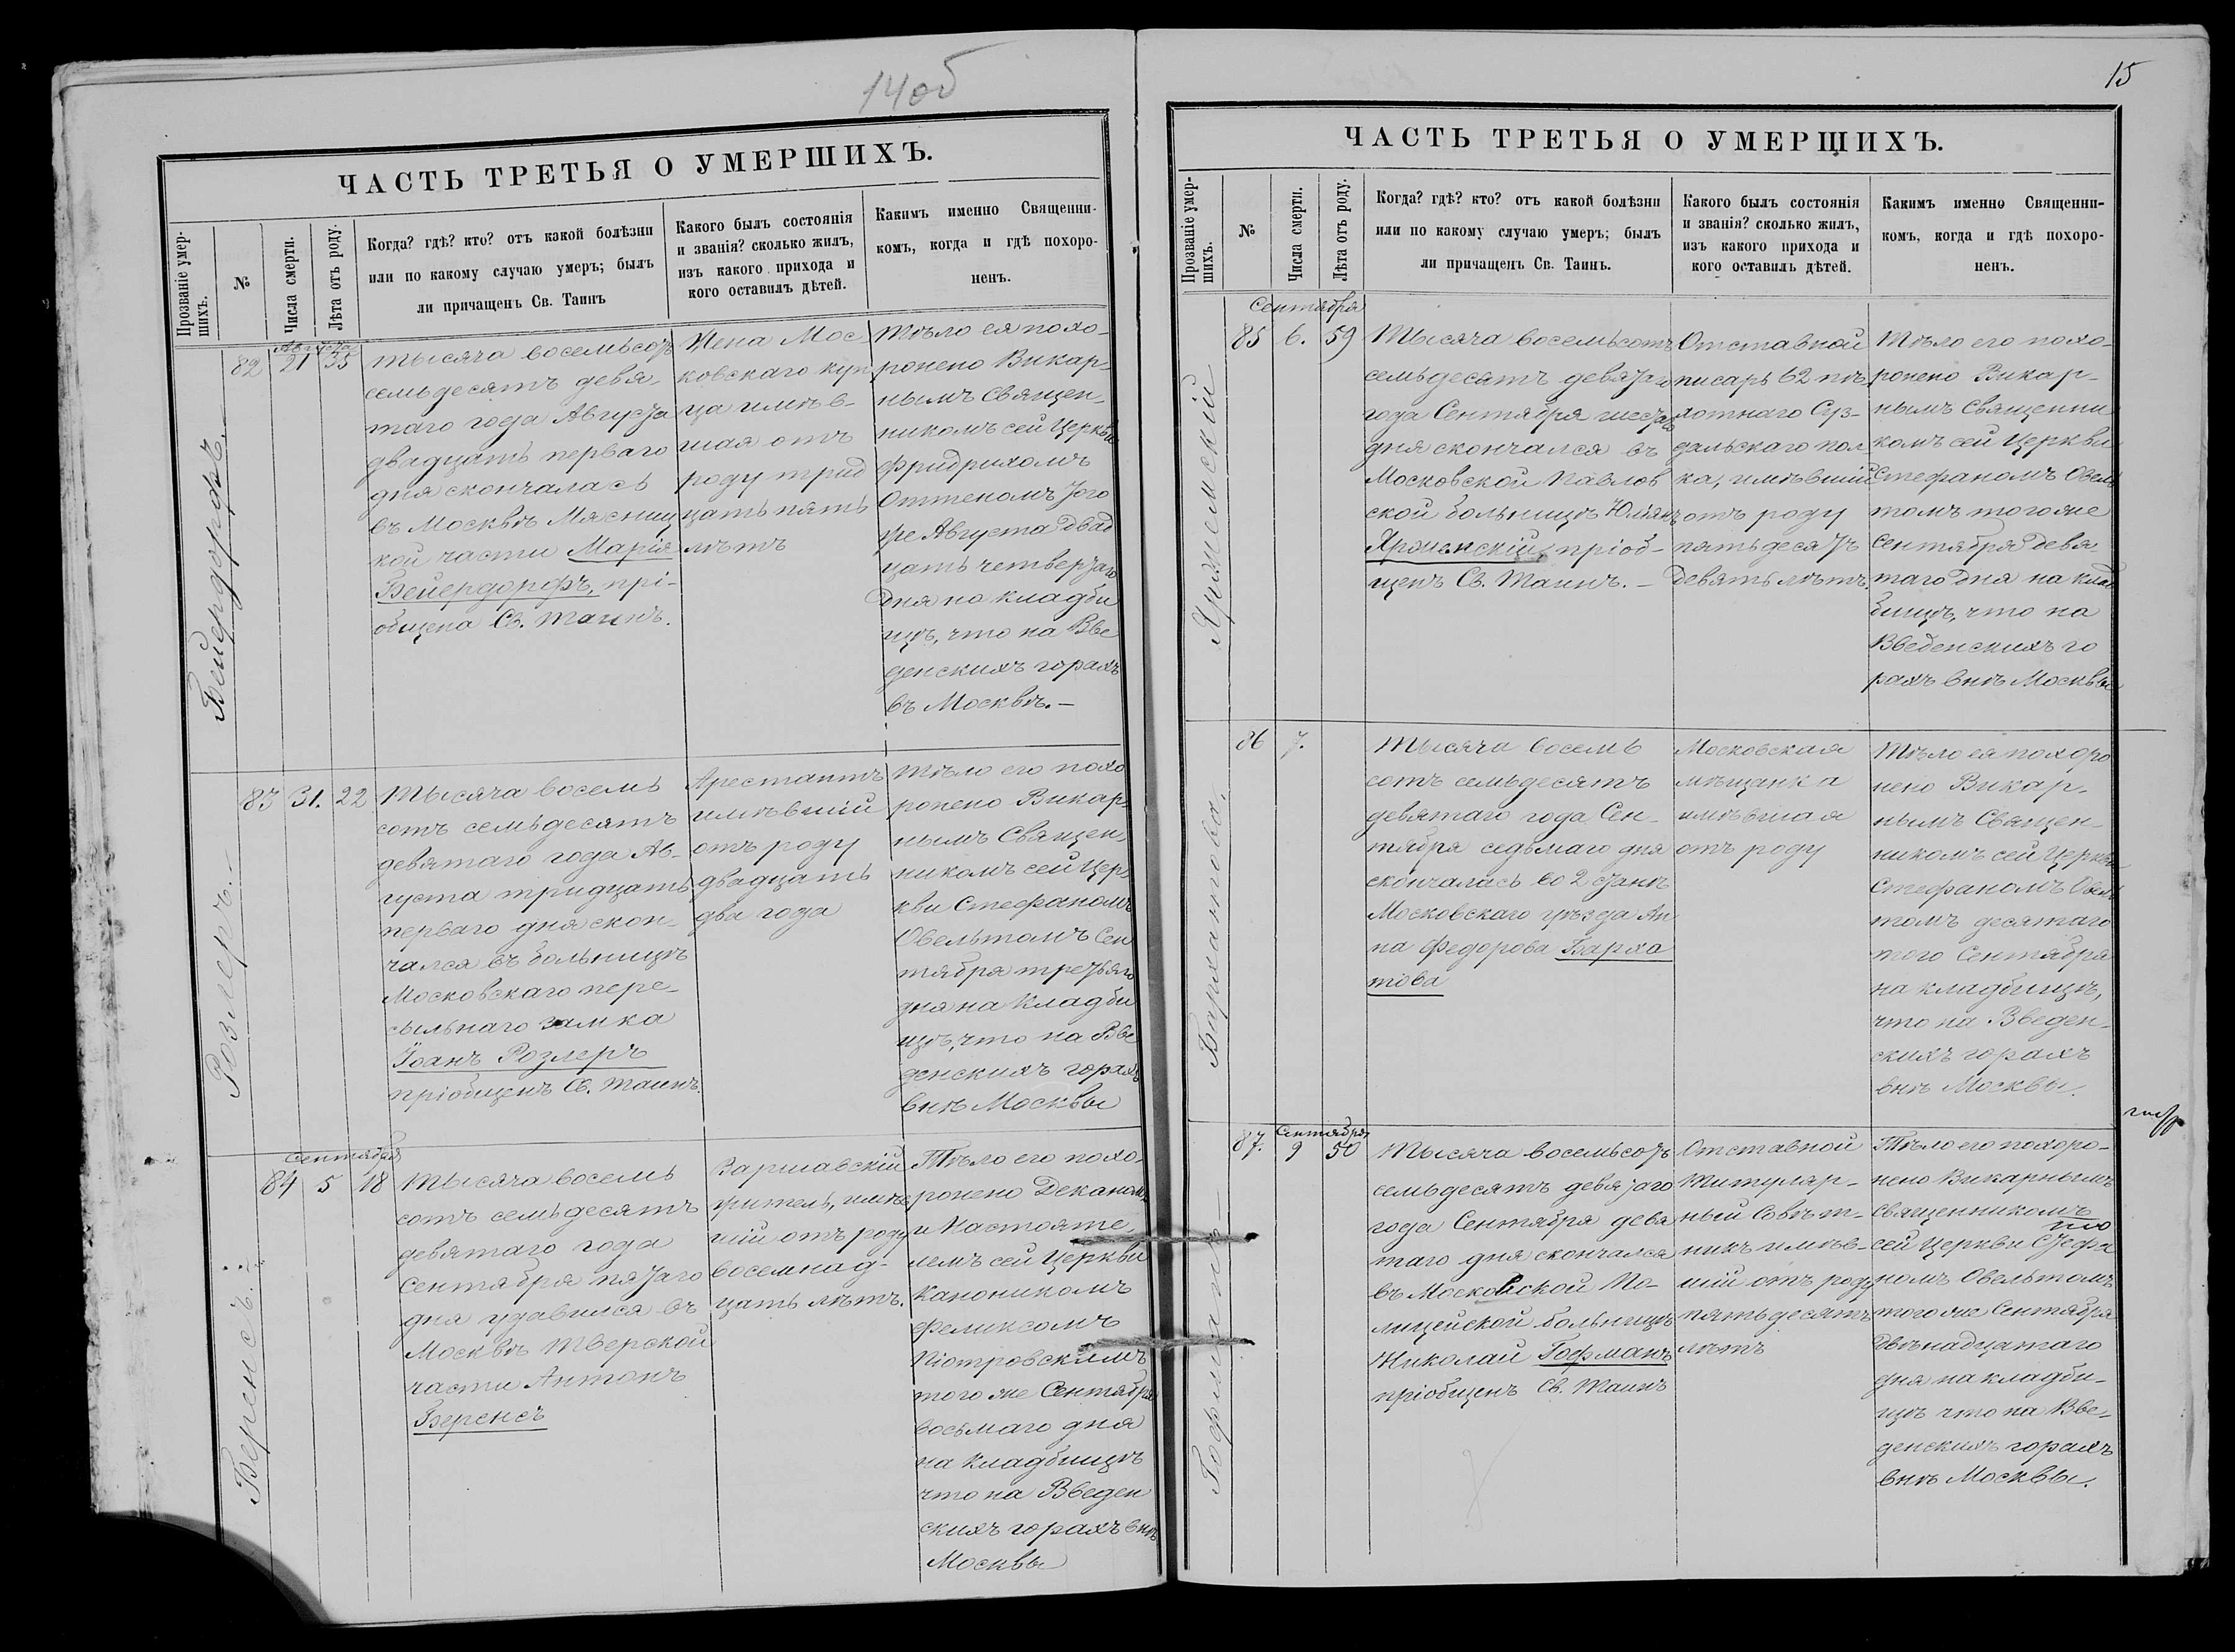 14 об
ЧАСТЬ ТРЕТЬЯ О УМЕРШИХЪ.
Прозваніе умер-
шихъ.
№
Числа смерти.
Лѣта отъ роду.
Когда? гдѣ? кто? отъ какой болѣзни
или по какому случаю умеръ; былъ
ли причащенъ Св. Таинъ
Какого былъ состоянія
и званія? сколько жилъ,
изъ какого прихода и
кого оставилъ дѣтей.
Какимъ именно Священни-
комъ, когда и гдѣ похоро-
ненъ.
Бейердорфъ.
Августа
82 21 35
Тысяча восемьсотъ
семьдесятъ девя-
таго года Августа
двадцать перваго
дня скончалась
въ Москвѣ Мясниц
кой части Марія
Бейердорфъ, прі-
общена Св. Таинъ.
Жена Мос
ковскаго куп
ца имѣв-
шая отъ
роду трид
цать пять
лѣтъ
Тѣло ея похо-
ронено Викар-
нымъ Священ-
никомъ сей Церкви
Фридрихомъ
Оттеномъ того
же Августа двад
цать четвертаго
дня на кладби
щѣ, что на Вве
денскихъ горахъ
въ Москвѣ.-
Розлеръ.-
83 31. 22
Тысяча восемь
сотъ семьдесятъ
девятаго года Ав-
густа тридцать
перваго дня скон-
чался въ больницѣ
Московскаго пере-
сыльнаго замка
Іоанъ Розлеръ
пріобщенъ Св. Таинъ.
Арестантъ
имѣвшій
отъ роду
двадцать
два года
Тѣло его похо
ронено Викар-
нымъ Священ-
никомъ сей Цер-
кви Стефаномъ
Овельтомъ Сен
тября третьяго
дня на кладби
щѣ, что на Вве
денскихъ горахъ
внѣ Москвы
Беренсъ.
Сентября
84 5 18
Тысяча восемь
сотъ семьдесятъ
девятаго года
Сентября пятаго
дня удавился въ
Москвѣ Тверской
части Антонъ
Беренсъ
Варшавскій
житель, имѣв
шій отъ роду
восемнад-
цать лѣтъ.
Тѣло его похо-
ронено Деканомъ
и Настояте-
лемъ сей Церкви
Каноникомъ
Феликсомъ
Піотровскимъ
того же Сентября
восьмаго дня
на кладбищѣ
что на Введен
скихъ горахъ внѣ
Москвы
15
ЧАСТЬ ТРЕТЬЯ О УМЕРШИХЪ.
Прозваніе умер-
шихъ.
№
Числа смерти.
Лѣта отъ роду.
Когда? гдѣ? кто? отъ какой болѣзни
или по какому случаю умеръ; былъ
ли причащенъ Св. Таинъ.
Какого былъ состоянія
и званія? сколько жилъ,
изъ какого прихода и
кого оставилъ дѣтей.
Какимъ именно Священни-
комъ, когда и гдѣ похоро-
ненъ.
Сентября
85 6. 59
Тысяча восемьсотъ
семьдесятъ девятаго
года Сентября шестаго
дня скончался въ
Московской Павлов
ской больницѣ Юліанъ
пріоб-
щенъ Св. Таинъ.-
Отставной
писарь 62 пѣ
хотнаго Суз-
дальскаго пол
ка, имѣвшій
отъ роду
пятьдесятъ
девять лѣтъ.
Тѣло его похо-
ронено Викар-
нымъ Священни
комъ сей Церкви
Стефаномъ Овель
томъ того же
Сентября девя
таго дня на клад
бищѣ, что на
Введенскихъ го
рахъ внѣ Москвы
Бархатова.
86 7.
Тысяча восемь
сотъ семьдесятъ
девятаго года Сен-
тября седьмаго дня
скончалась во 2 станѣ
Московскаго уѣзда Ан
на Федорова Барха
това
Московская
мѣщанка
имѣвшая
отъ роду
Тѣло ея похоро
нено Викар-
нымъ Священ-
никомъ сей Церкви
Стефаномъ Овель
томъ десятаго
того Сентября
на кладбищѣ,
что на Введен-
скихъ горахъ
внѣ Москвы.
Гофманъ
Сентября
87. 9 50
Тысяча восемьсотъ
семьдесятъ девятаго
года Сентября девя
таго дня скончался
въ Московской По-
лицейской больницѣ
Николай Гофманъ
пріобщенъ Св. Таинъ
Отставной
Титуляр-
ный Совѣт-
никъ имѣв-
шій отъ роду
пятьдесятъ
лѣтъ
Тѣло его похоро-
нено Викарнымъ
Священникомъ
сей Церкви Стефа
номъ Овельтомъ
того же Сентября
двѣнадцатаго
дня на кладби-
щѣ что на Вве-
денскихъ горахъ
внѣ Москвы.